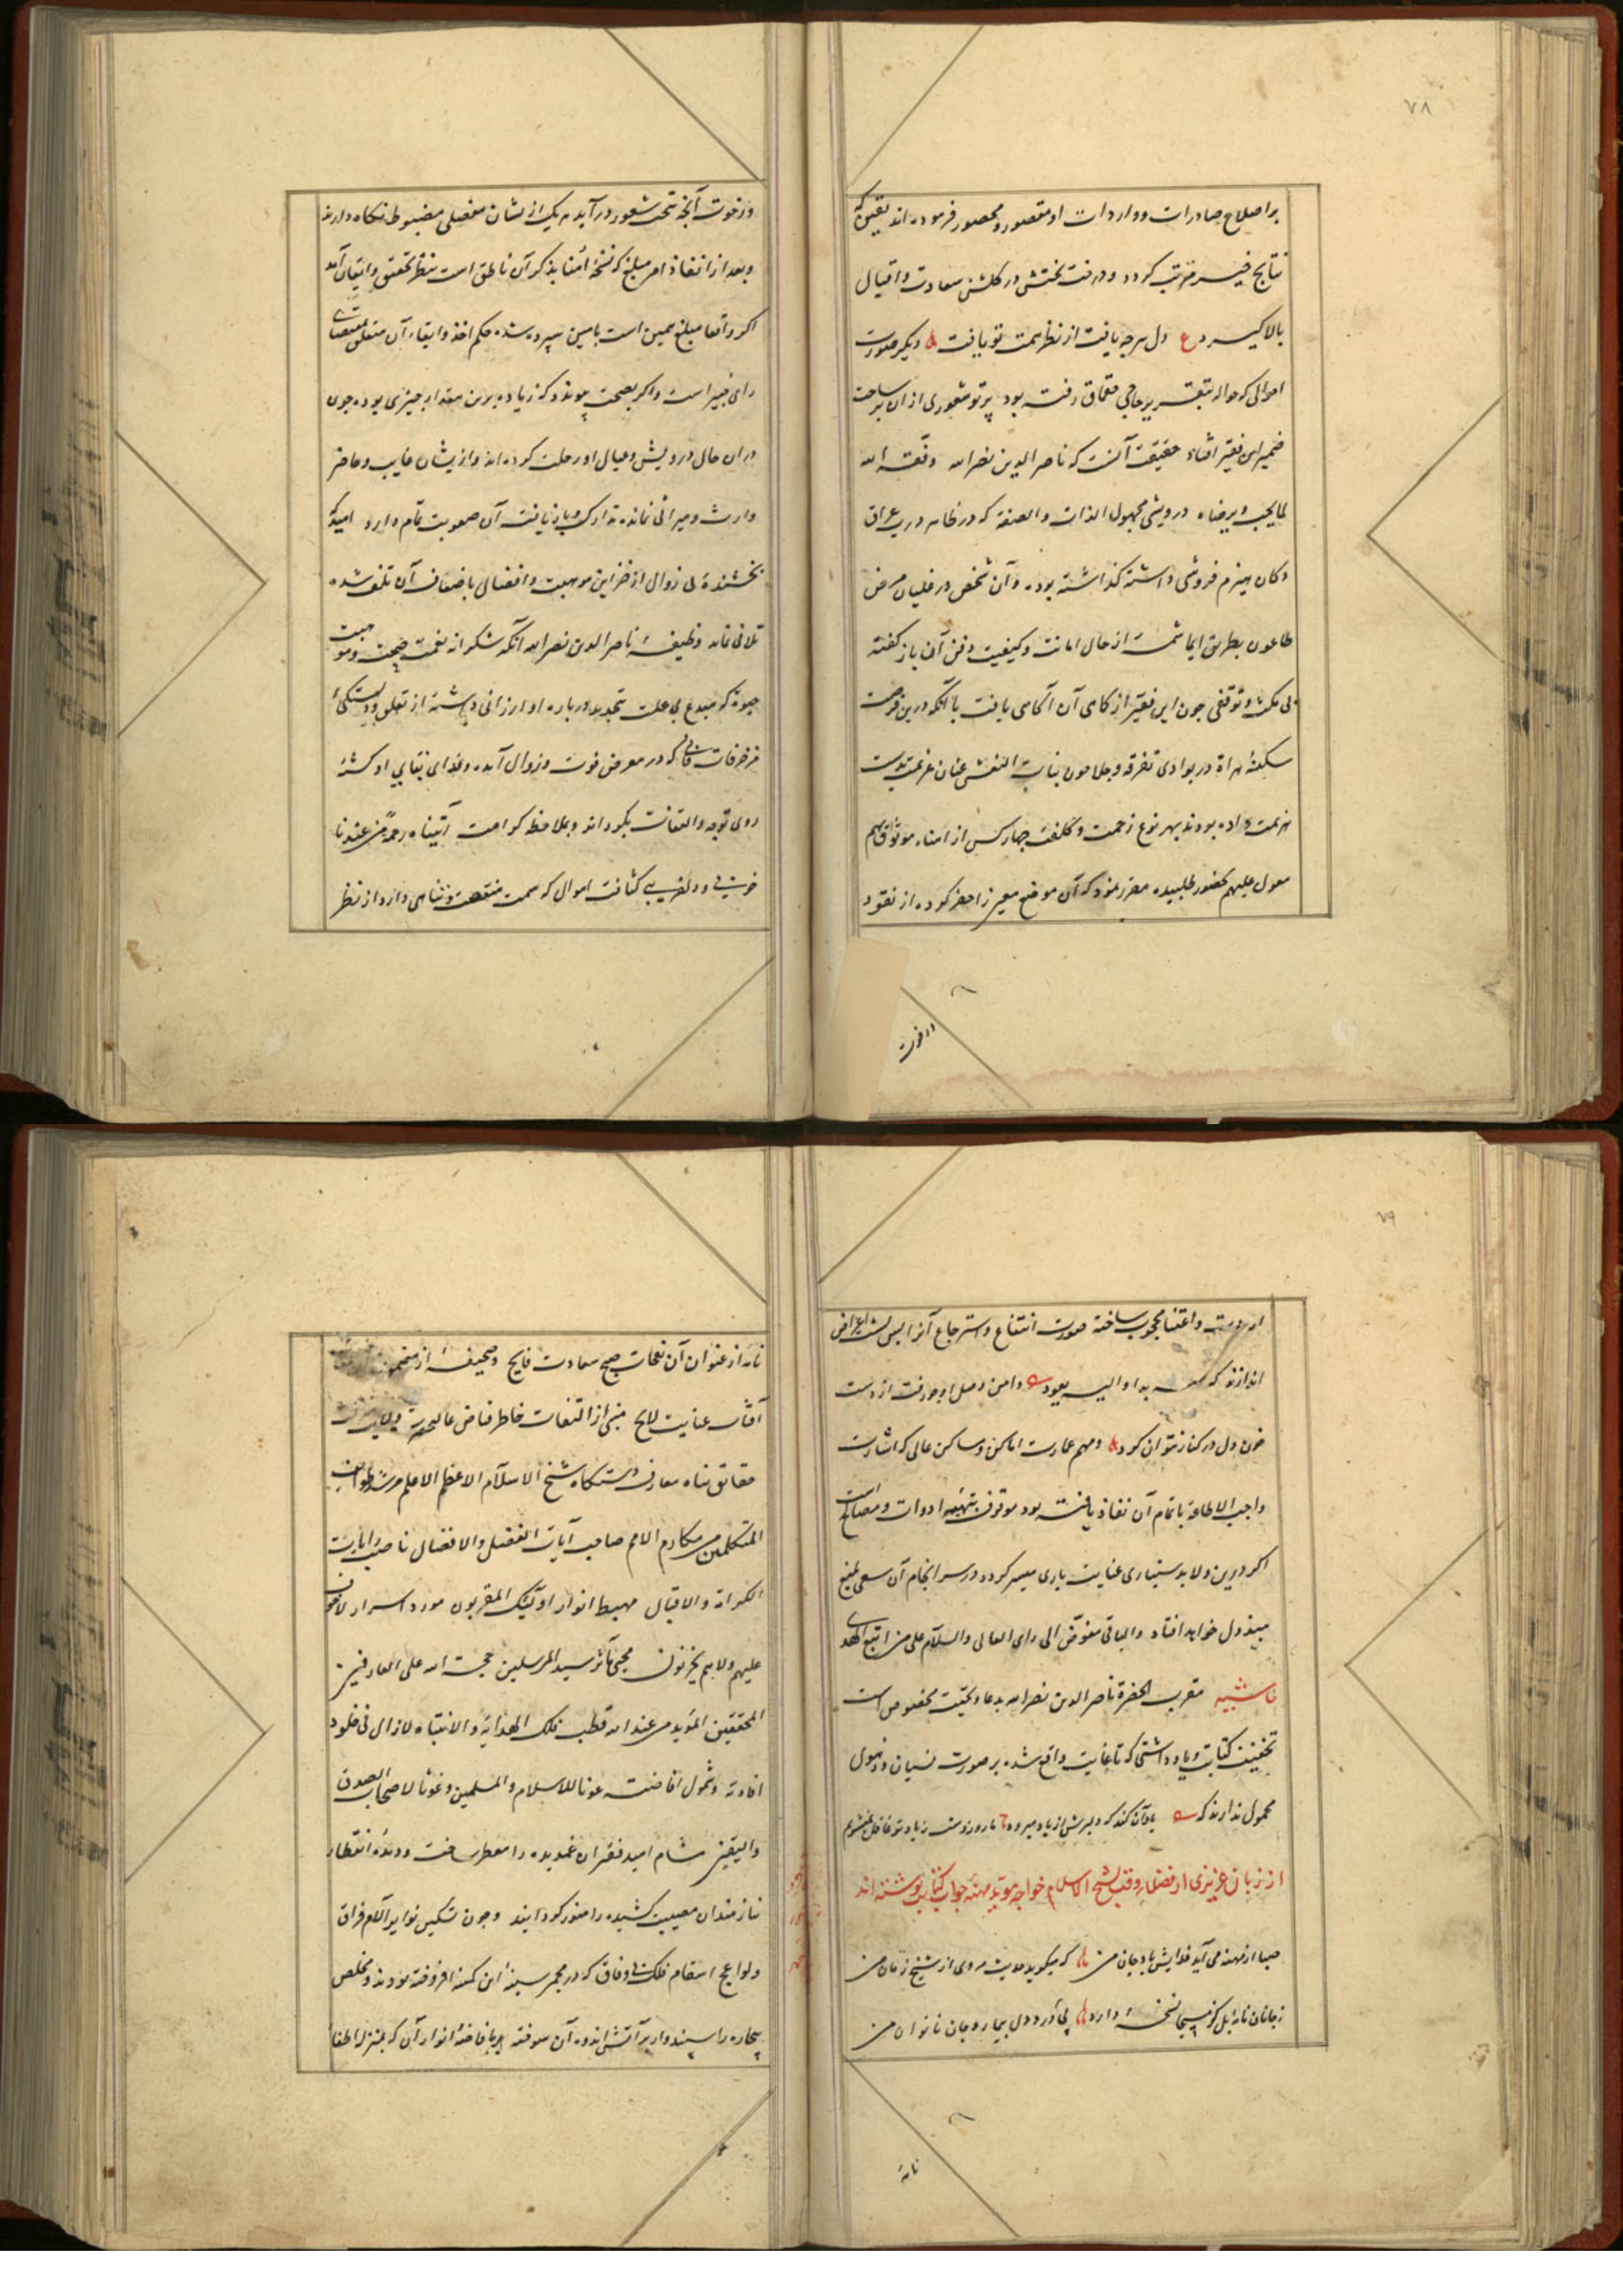 ۷۸
بر اصلاح صادرات و واردات او مقصور و محصور فرموده اند یقین که
نتایج خیر مرتب کردد و درخت بختش در کلشن سعادت و اقبال
بالا کیرد ع دل هرچه یافت از نظر همت تو یافت دیکر صورت
احوالی که حواله بتقریر حاجی رفته بود پرتو شعوری از آن بر ساحت
ضمیر این فقیر افتاد حقیقت آنست که ناصر الدین نصر الله وفقه الله
لما یحب و یرضاه درویشی مجهول الذات و الصفة که در ظاهر درب عراق
دکان هیزم فروشی داشته کذاشته بوده و آن شخص در غلیان مرض
طاعون بطریق ایما شمه از حال امانت و کیفیت دفن آن باز کفته
بی مکث و توقفی چون این فقیر از کاهی آن آکاهی یافت با آنکه درین فرصت
سکنه هراة در بوادی تفرقه و جلا چون بنات النعش عنان عزیمت بدست
هزیمت داده بودند بهر نوع زحمت و کلفت چهار کس از امناء موثوق بهم
معول علیهم بحضور طلبیده مقرر نمود که آن موضع معین را حفر کرده از نقود
در خوت
و رخوت آنچه تحت شعور در آید هر یک از یشان مفصلی مضبوط نکاه دارند
و بعد از انفاذ امر مبلغی که نسخه امنا بذکر آن ناطق است بنظر تحقیق و ایقان آمد
اکر واقعا مبلغ همین است بامین سپرده شده حکم اخذ و ابقاء آن متعلق بمقتضای
رای خبیر است و اکر بصحت پیوندد که زیاده برین مقدار چیزی بوده چون
در ان حال درویش و عیال او رحلت کرده اند و از یشان غایب و حاضر
وارث و میراثی نمانده تدارک و باز یافت آن صعوبت تمام دارد امید که
بخشنده بی زوال از خزاین موهبت و افضال باضعاف آن تلف شده
تلافی نماید وظیفه ناصر الدین نصر الله آنکه شکرانه نعمت صحت و موهبت
حیوة که مبدع بی علت بتجدید درباره او ارزانی داشته از تعلق و دلبستکی
مزخرفات فانی که در معرض فوت و زوال آمده و فدای بقای او کشته
روی توجه و التفات بکرداند و بملاحظه کرامت آتیناه رحمة من عندنا
خوبی و دلفریبی کثافت اموال که سمت منقصت و تناهی دارد از نظر
۷۹
از دست و اعتنا محجوب ساخته صورت انتفاع و استرجاع آنرا پس پشت اعراض
اندازند که بدا والیه یعود دامن وصل او چو رفت از دست
خون دل در کنار نتوان کرد و مهم عمارت اماکن و مساکن عالی که اشارت
واجب الاطاعة باتمام آن نفاذ یافته بود موقوف بتهیه ادوات و مصالح است
اکر درین ولا بدستیاری عنایت باری میسر کردد در سرانجام آن سعی بلیغ
مبذول خواهد افتاد والباقی مفوض الی رای العالی والسلام علی من اتبع الهدی
حاشیه مقرب الحضرة ناصر الدین نصر الله بدعا و تحیت مخصوص است
تخفیف کتابت و یادداشتی که تا غایت واقع شده بر صورت نسیان و ذهول
محمول ندارند که یاد آن کند که دلبرش از یاد میرود ما روز و شب ز یاد تو غافل نمیشویم
از زبان عزیزی از فضلاء وقت بشیخ الاسلام خواجه مؤید مهنه جواب کتابت نوشته اند
صبا از مهنه می آید فدایش باد جان من که میکوید حدیث مروی از شیخ زمان من
ز جانان نامه بل کز مسیحا نسخه دارد پی درد دل بیمار و جان ناتوان من
نامه
نامه از عنوان آن نفحات صبح سعادت فایح و صحیفه از مضمون
آفتاب عنایت لایح مبنی از التفات خاطر فیاض عالیحضرت ولایت منقبت
حقایق پناه معارف دستکاه شیخ الاسلام الاعظم الاعلم مرشد طوایف
المتکلمین من مکارم الامم صاحب آیات الفضل والافضال ناصب رایات
الکرامة والاقبال مهبط انوار اولئک المقربون مورد اسرار لا خوف
علیهم ولا هم یحزنون محیی مآثر سید المرسلین حجة الله علی العارفین
المحققین المؤید من عند الله قطب فلک الهدایة والانتباه لازال فی خلود
افادته و شمول افاضته عونا للاسلام والمسلمین و غوثا لاصحاب الصدق
والیقین مشام امید فقیران غمدیده را معطر ساخت و دیده انتظار
نیازمندان مصیبت کشیده را منور کردانید و چون تسکین نوایر آلام فراق
و لواعج انتقام فلک بی وفاق که در مجمر سینه این کمینه افروخته بودند و مخلص
بیچاره را سپندوار بر آتش اندوه آن سوخته بافاضه انوار آن که بمنزله اطفاء